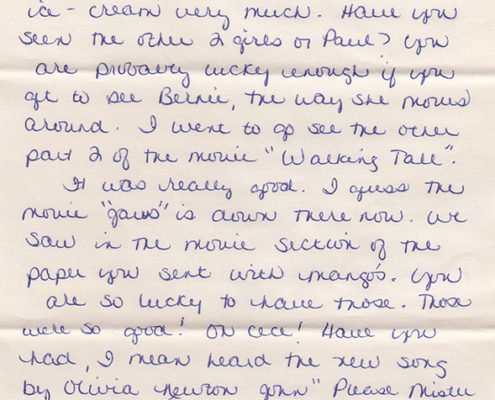 ice-cream very much. Have you
seen the other 2 girls or Paul? You
are probably lucky enough if you
get to see Bernie, the way she moves
around. I went to go see the other
part 2 of the movie "Walking Tall".
It was really good. I guess the
movie "Jaws" is down there now. We
saw in the movie section of the
paper you sent with mango's. You
are so lucky to have those. Those
were so good! Oh Cece! Have you
had, I mean heard the new song
by Olivia Newton John "Please Mister